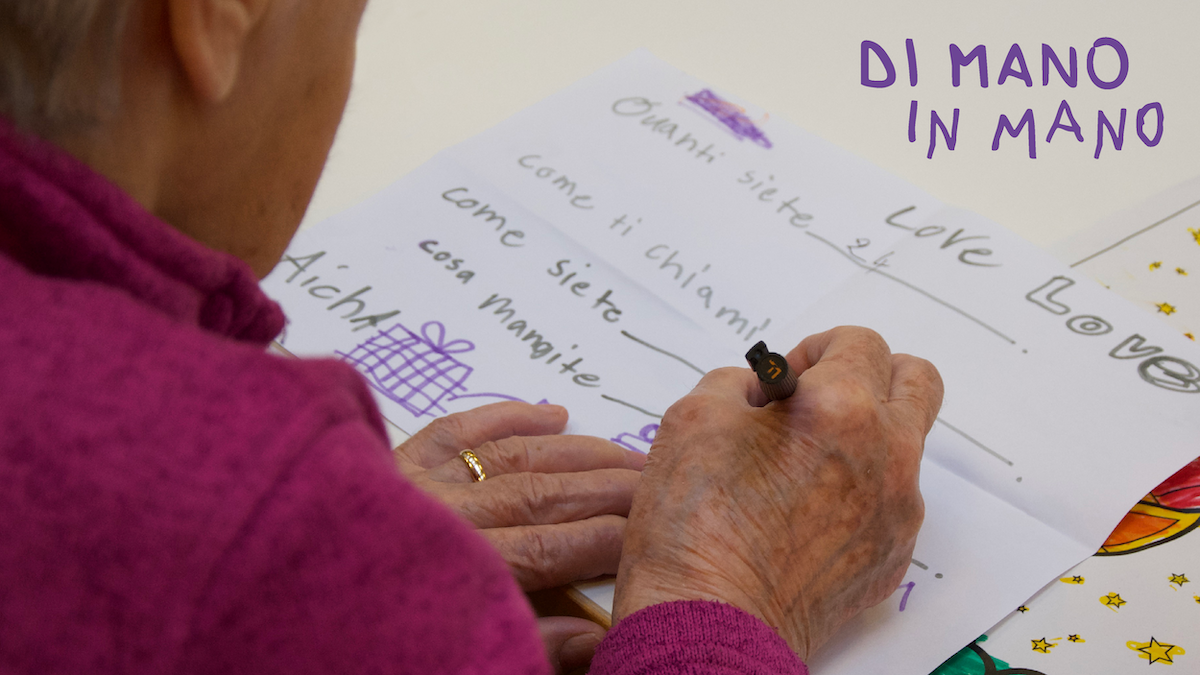 DI MANO
IN MANO
Quanti siete 24
Love Love
come ti chiami
come siete
cosa mangite
AichA